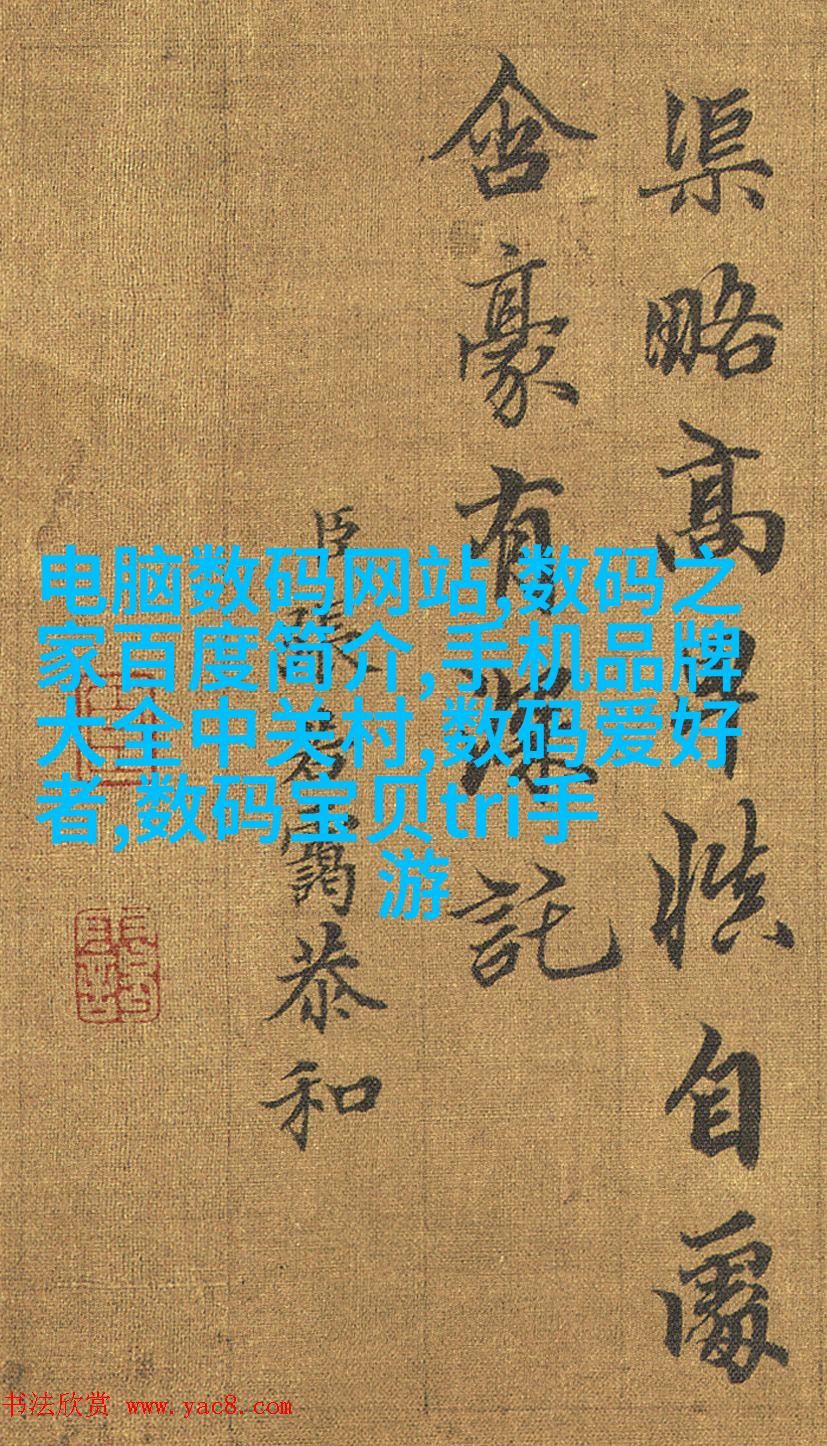 渠略高慎自處
含豪有託
臣張若靄恭和
电脑数码网站,数码之
家百度简介,手机品牌
大全中关村,数码爱好
者,数码宝贝tri手
游
书法欣赏 www.yac8.com